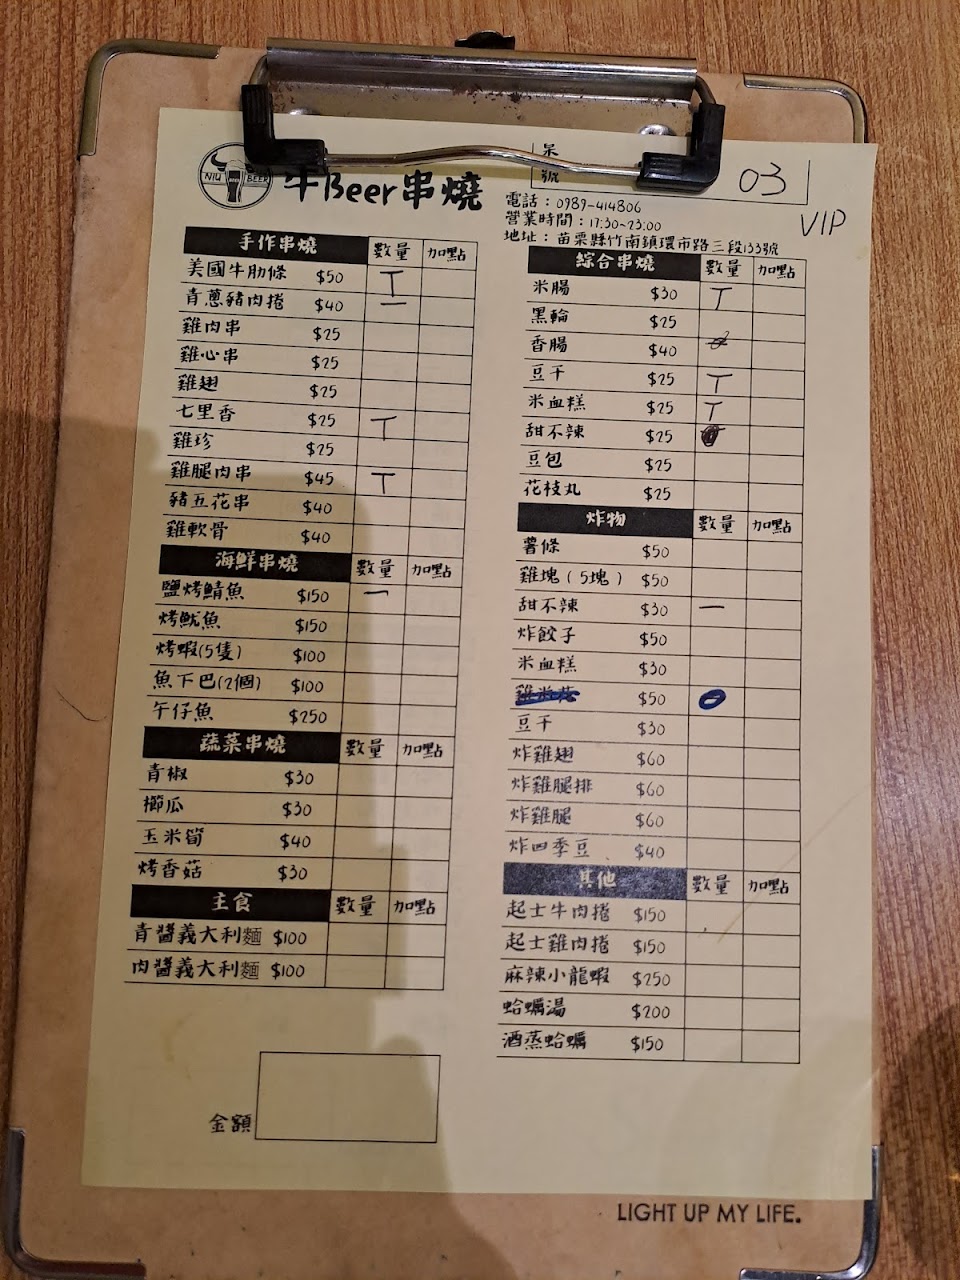 NIU BEER
牛Beer串燒
桌號 03
VIP
電話：0989-414806
營業時間：17:30~23:00
地址：苗栗縣竹南鎮環市路三段133號
手作串燒 數量 加點
美國牛肋條 $50 T
青蔥豬肉捲 $40 一
雞肉串 $25
雞心串 $25
雞翅 $25
七里香 $25 T
雞珍 $25
雞腿肉串 $45 T
豬五花串 $40
雞軟骨 $40
海鮮串燒 數量 加點
鹽烤鯖魚 $150 一
烤魷魚 $150
烤蝦(5隻) $100
魚下巴(2個) $100
午仔魚 $250
蔬菜串燒 數量 加點
青椒 $30
櫛瓜 $30
玉米筍 $40
烤香菇 $30
主食 數量 加點
青醬義大利麵 $100
肉醬義大利麵 $100
金額
綜合串燒 數量 加點
米腸 $30 T
黑輪 $25
香腸 $40
豆干 $25 T
米血糕 $25 T
甜不辣 $25
豆包 $25
花枝丸 $25
炸物 數量 加點
薯條 $50
雞塊(5塊) $50
甜不辣 $30 一
炸餃子 $50
米血糕 $30
雞米花 $50
豆干 $30
炸雞翅 $60
炸雞腿排 $60
炸雞腿 $60
炸四季豆 $40
其他 數量 加點
起士牛肉捲 $150
起士雞肉捲 $150
麻辣小龍蝦 $250
蛤蠣湯 $200
酒蒸蛤蠣 $150
LIGHT UP MY LIFE.